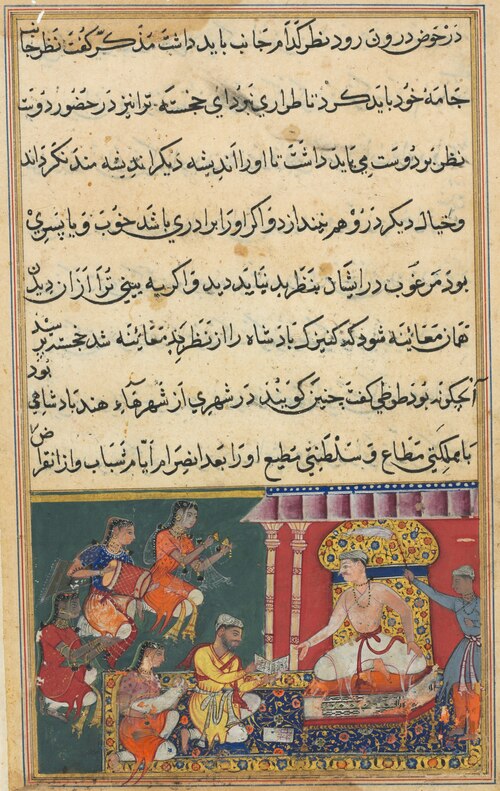 در حوض درون رود نظر کدام جانب باید داشت مذکر گفت نظر جانب
جامهٔ خود باید کرد تا طراری نبرد ای خجسته ترا نیز در حضور دوست
نظر بر دوست می باید داشت تا او را اندیشه دیگر اندیشه مند نکرداند
و خیال دیکر در وهم نیندازد و اکر او را برادری باشد خوب و یا پسری
بود مرغوب در ایشان بنظر بد نباید دید و اکر به بینی ترا از ان دیدن
همان معاینه شود که کنیزک بادشاه را از نظر بد معاینه شد خجسته پرسید
آنچکونه بود طوطی کفت چنین کویند در شهری از شهرهاء هند بادشاهی بود
با مملکتی مطاع و سلطنتی مطیع او را بعد انصرام ایام شباب و از انقراض